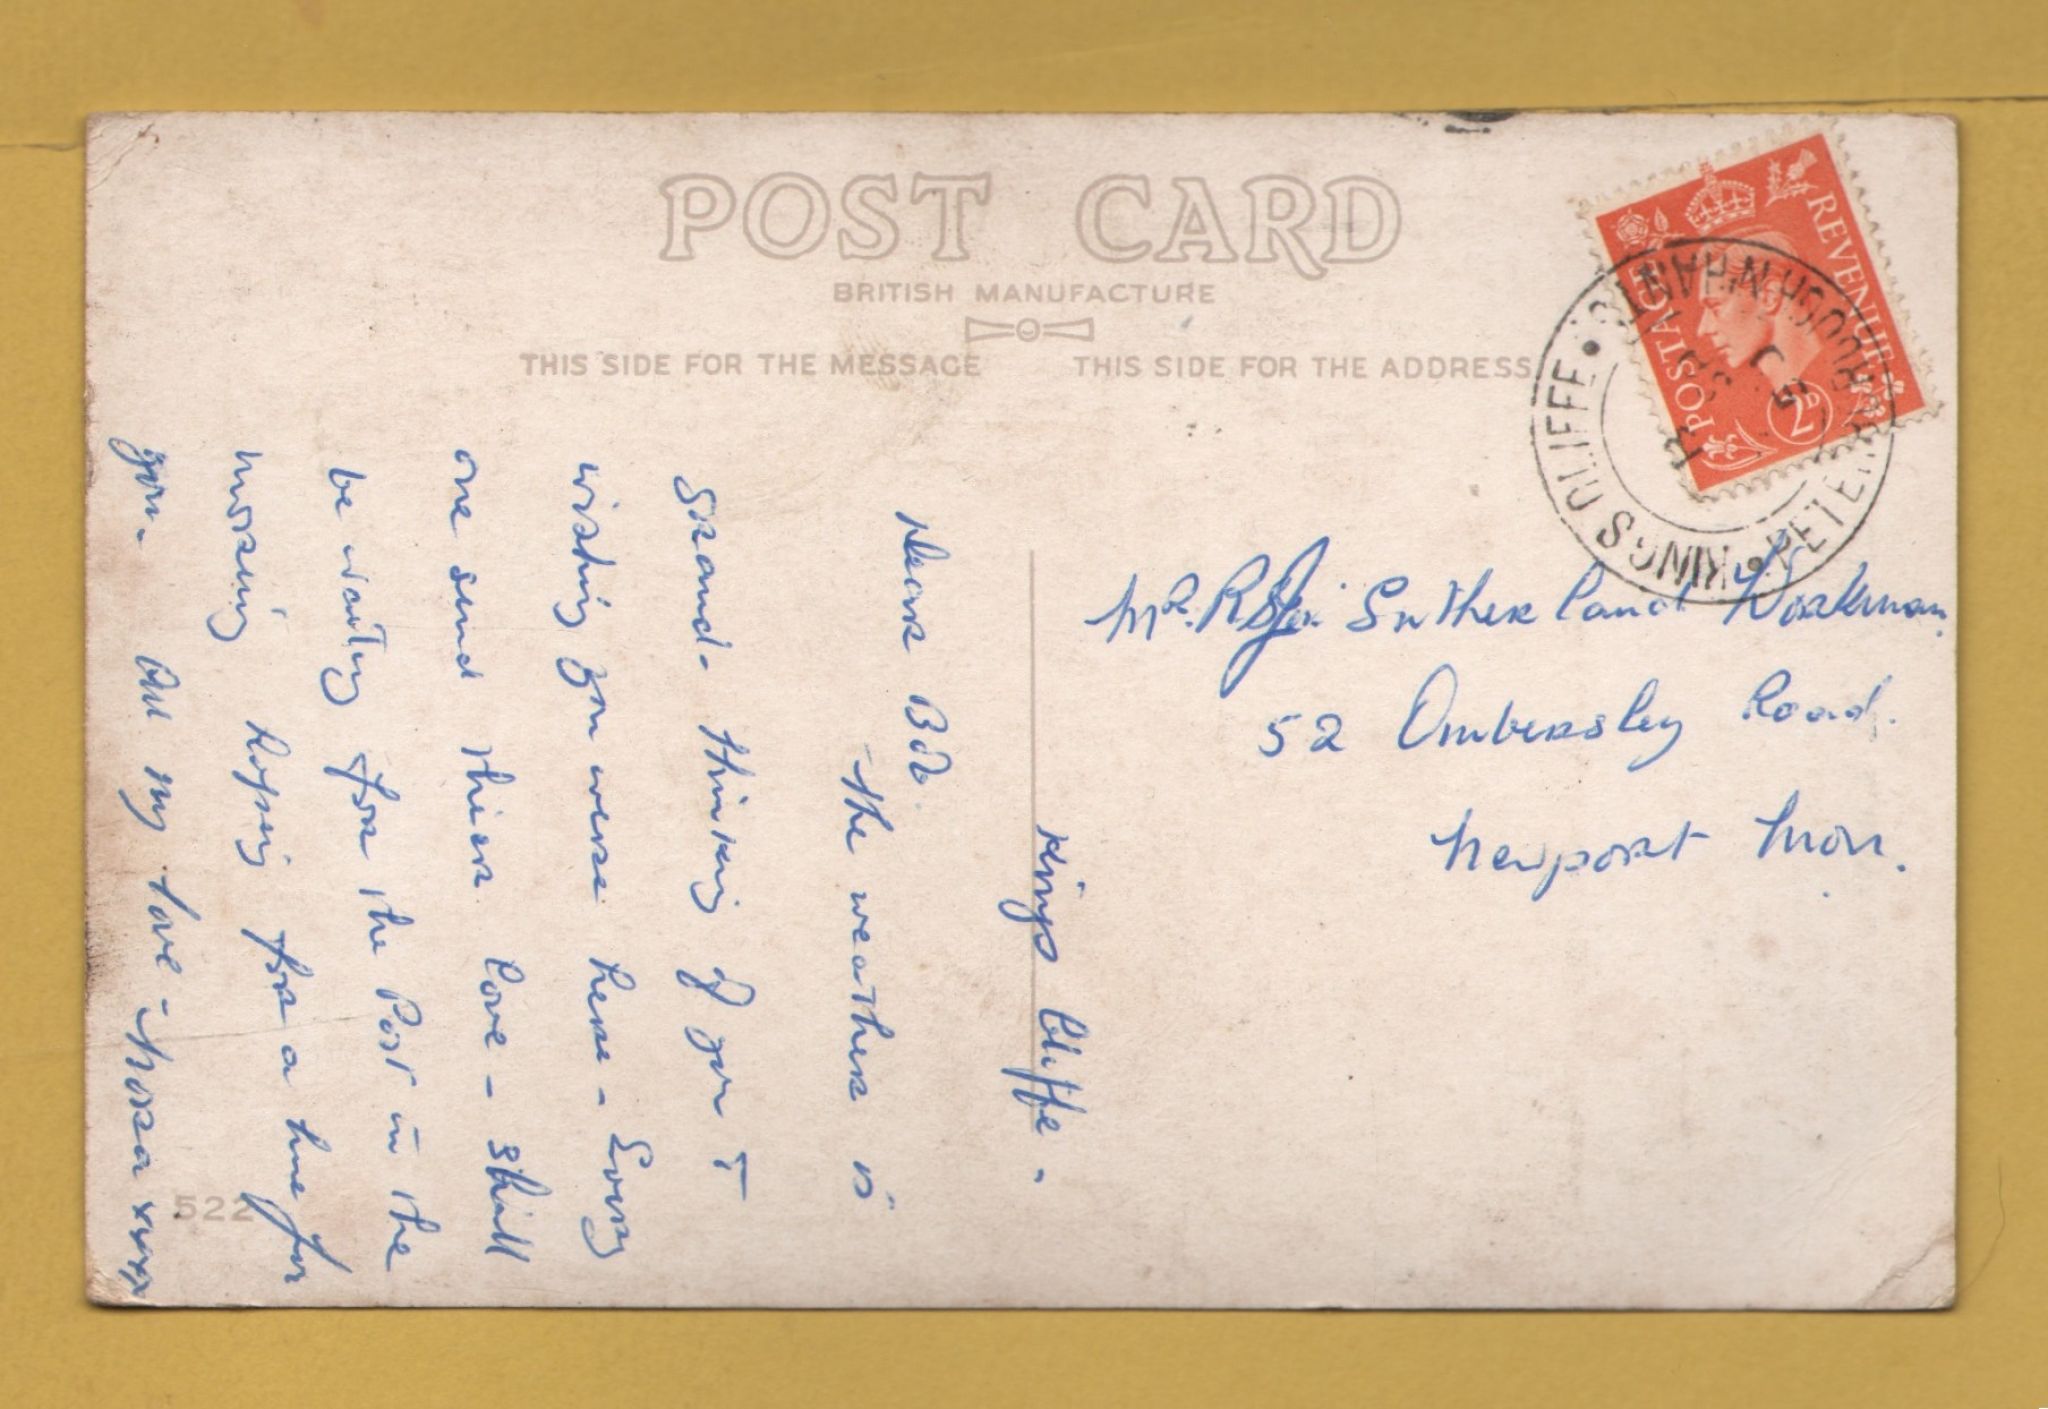 POST CARD
BRITISH MANUFACTURE
THIS SIDE FOR THE MESSAGE
THIS SIDE FOR THE ADDRESS
POSTAGE REVENUE
2D
KINGS CLIFFE • PETERBOROUGH NHANTS
Kings Cliffe -
Dear Bob.
The weather is
grand. thinking of you &
wishing you were here - Every
one send their love - shall
be waiting for the Post in the
morning hoping for a line from
you. All my love - Nora xxxx
Mr. Sutherland Workman.
52 Ombersley Road.
Newport Mon.
522